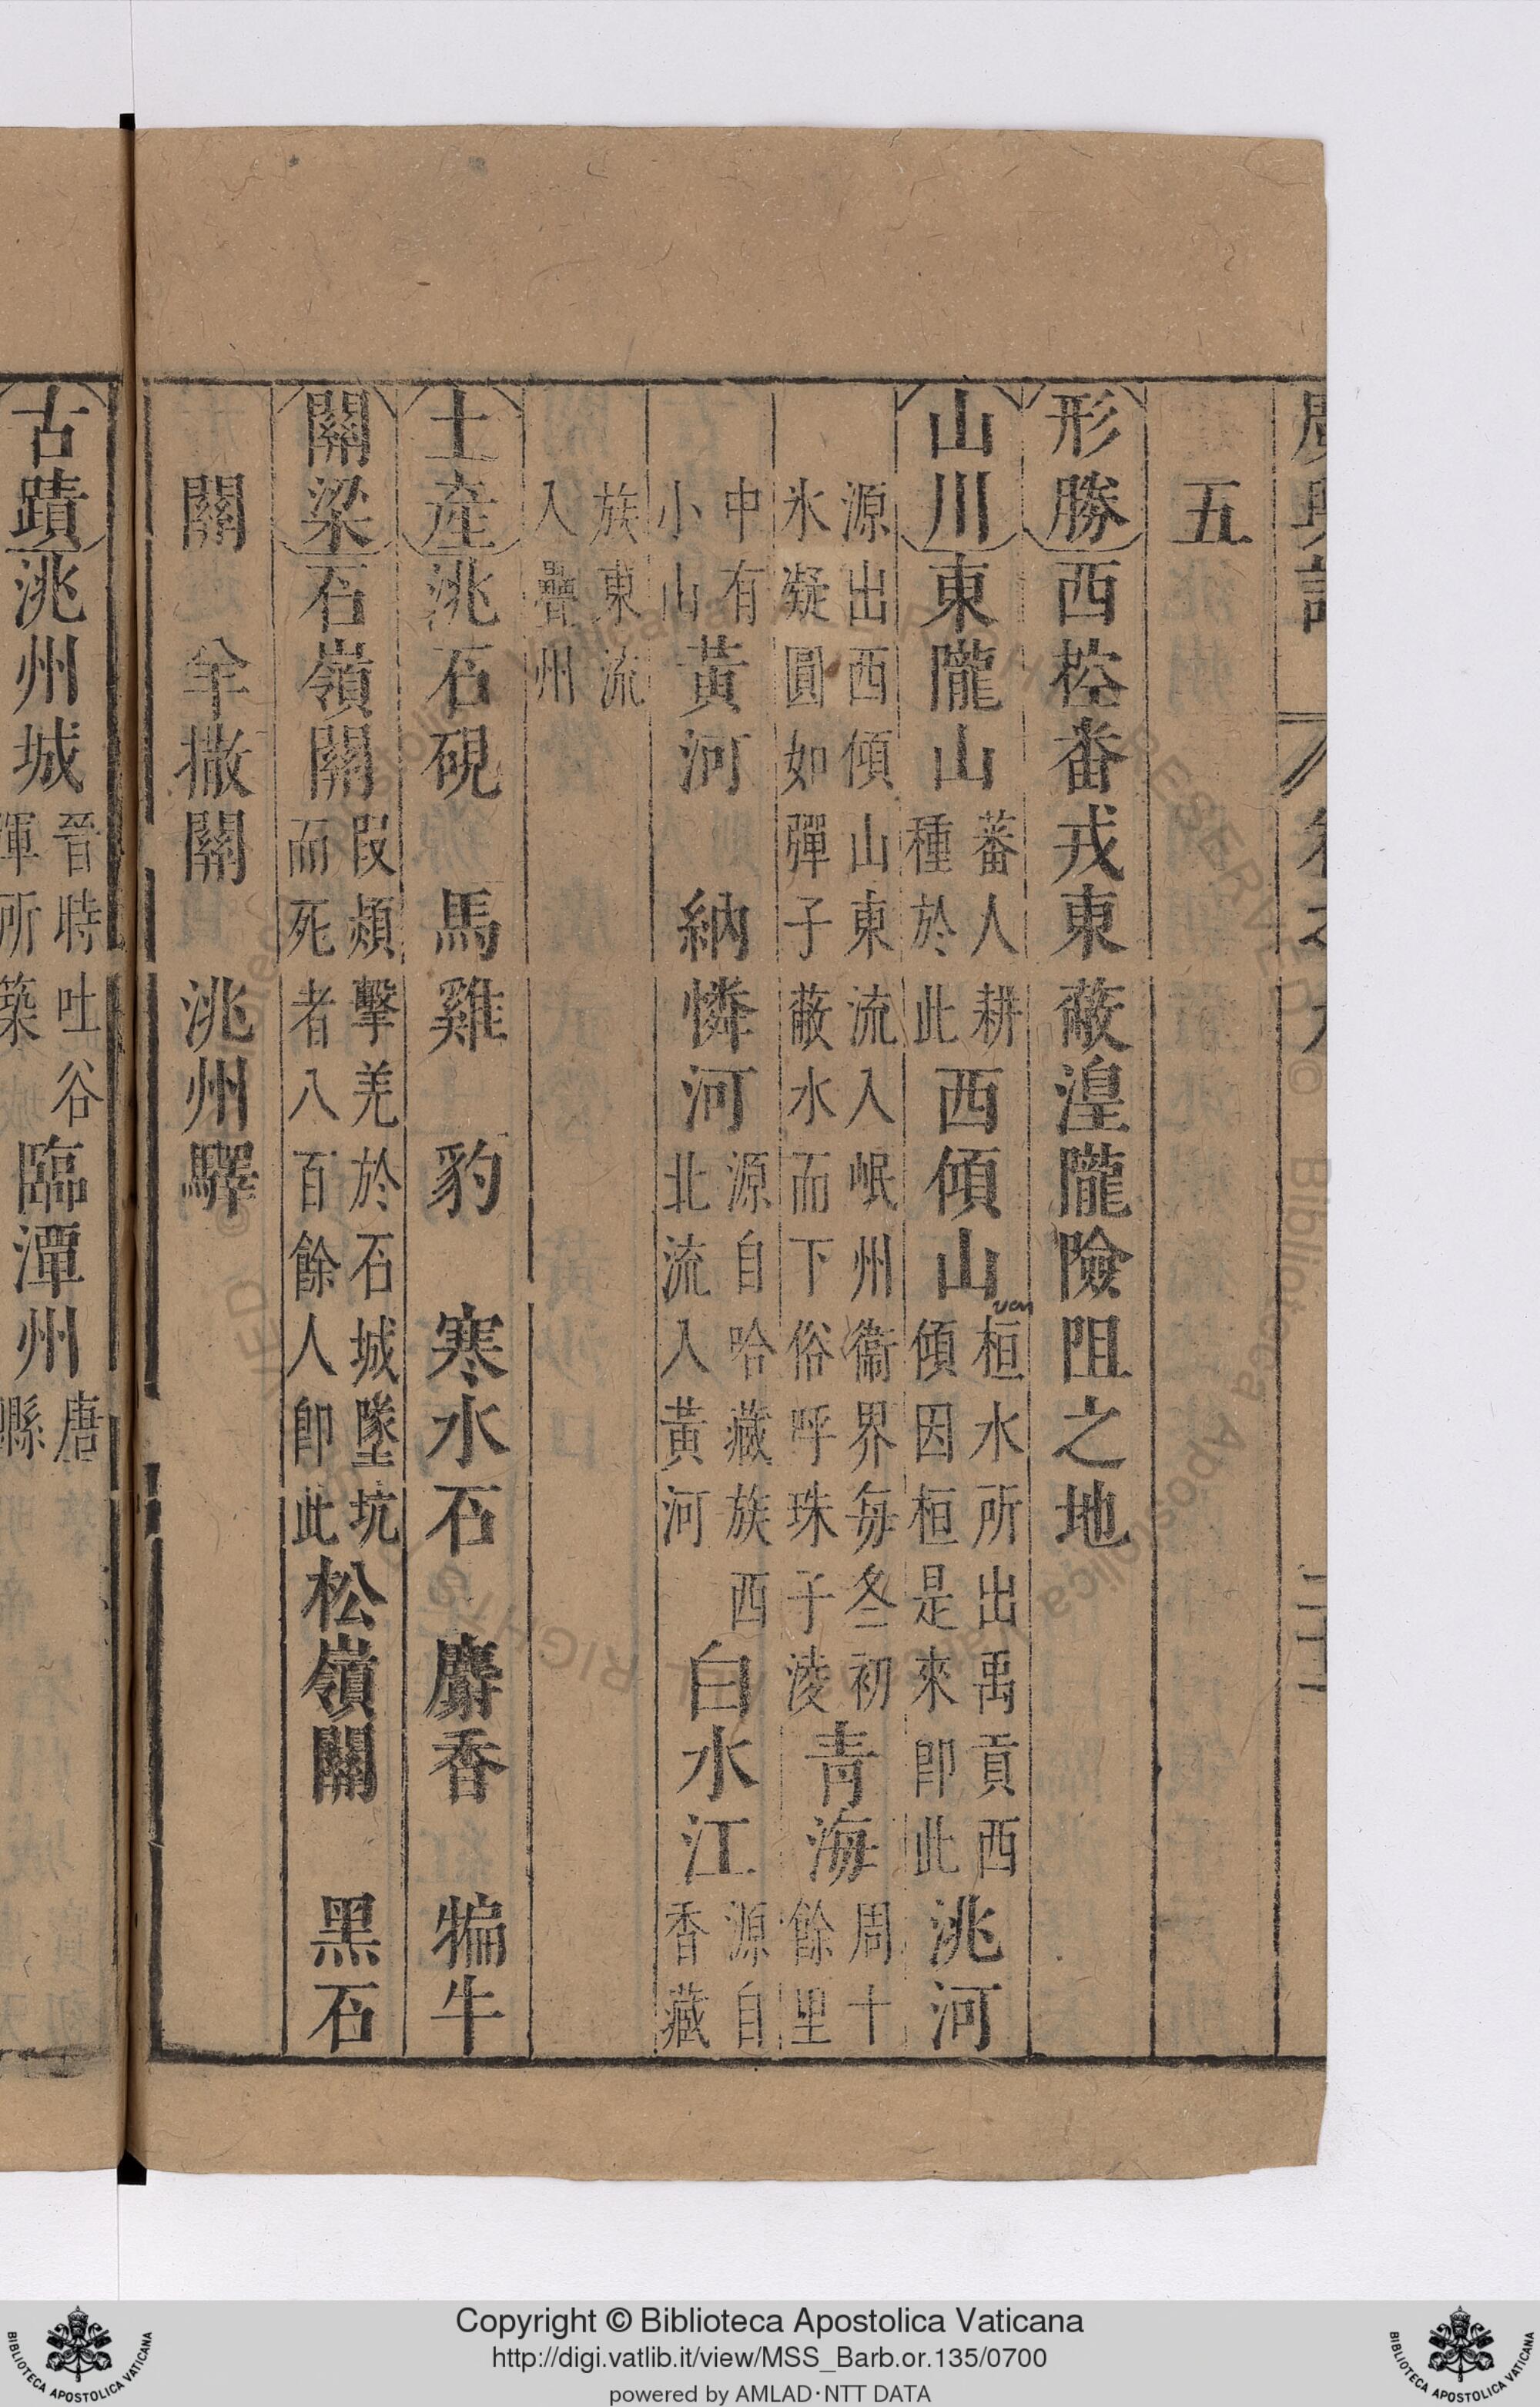 五
形勝西控番戎東蔽湟隴險阻之地
山川東隴山蕃人耕種於此西傾山桓水所出禹貢西傾因桓是來卽此洮河
源出西傾山東流入岷州衞界每冬初氷凝圓如彈子蔽水而下俗呼珠子淩青海周十餘里
中有小山黃河 納憐河源自哈藏族西北流入黃河白水江源自香藏
族東流入疊州
土產洮石硯 馬雞 豹 寒水石 麝香 犏牛
關梁石嶺關叚熲擊羌於石城墜坑而死者八百餘人卽此松嶺關 黑石
關 羊撒關 洮州驛
古蹟洮州城晉時吐谷渾所築臨潭州唐縣
ven
Copyright © Biblioteca Apostolica Vaticana
http://digi.vatlib.it/view/MSS_Barb.or.135/0700
powered by AMLAD·NTT DATA
BIBLIOTECA APOSTOLICA VATICANA
BIBLIOTECA APOSTOLICA VATICANA